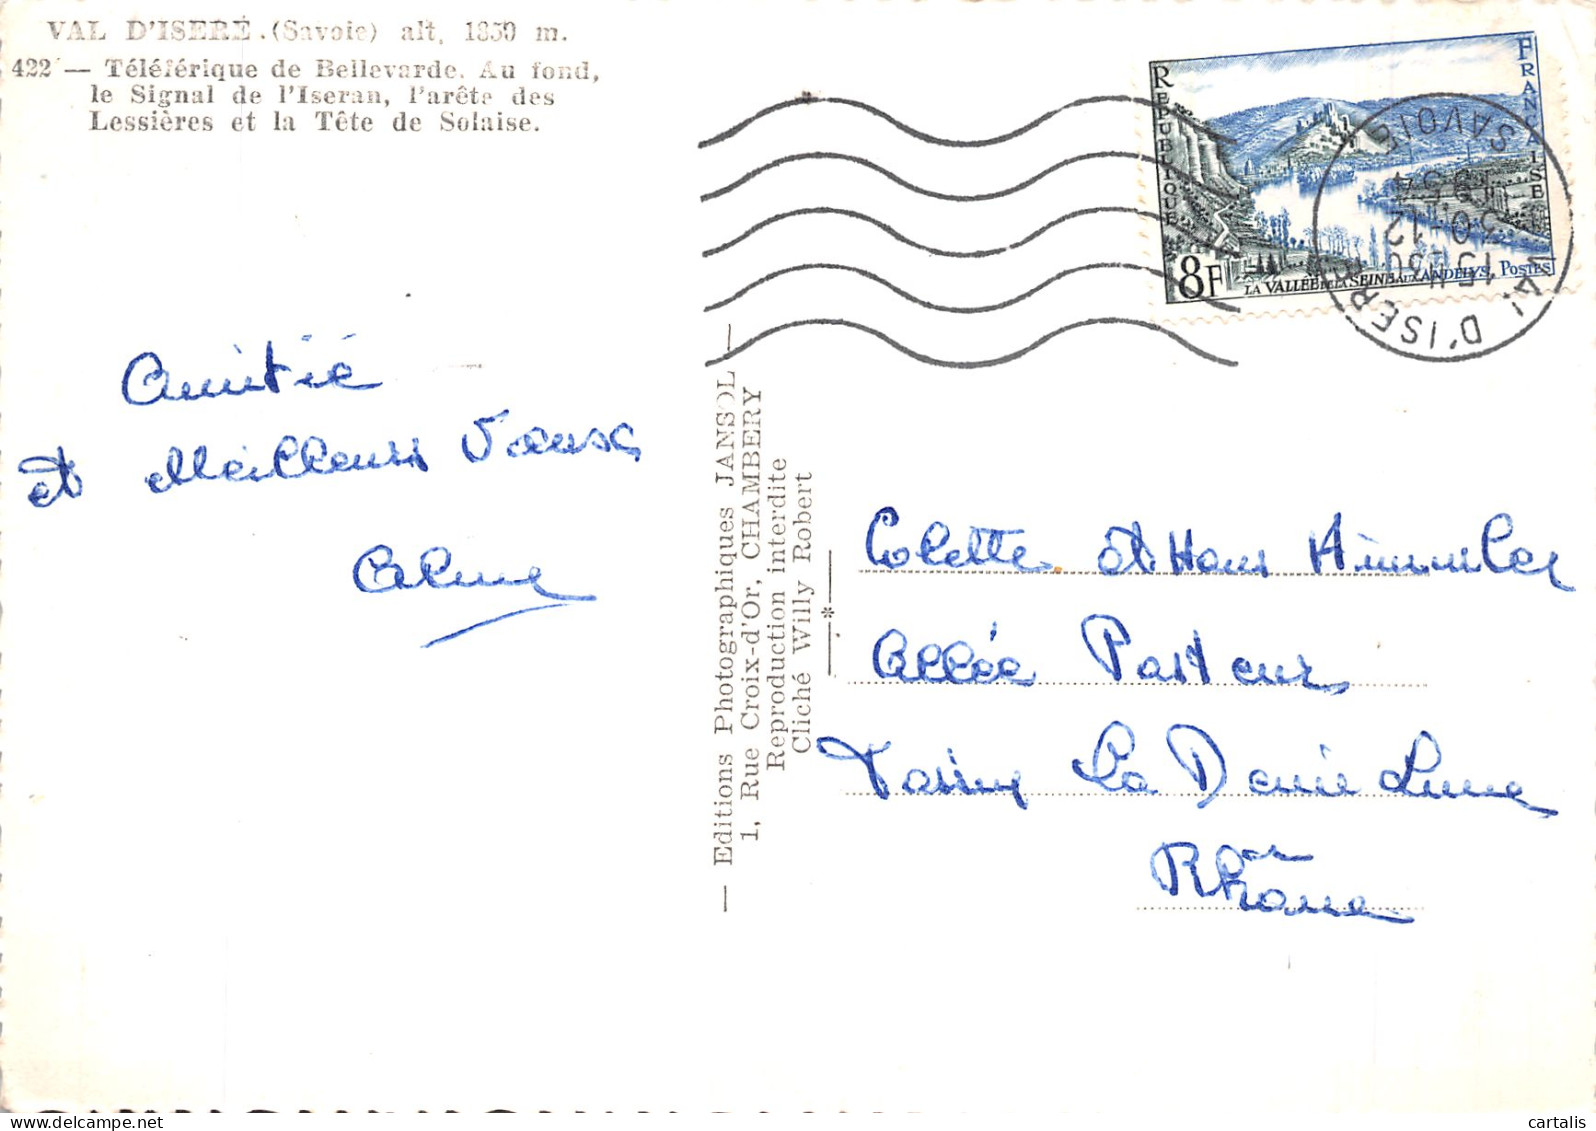 VAL D'ISERE. (Savoie) alt. 1850 m.
422 — Téléférique de Bellevarde. Au fond,
le Signal de l'Iseran, l'arête des
Lessières et la Tête de Solaise.
Amitié
et Meilleurs Voeux
— Editions Photographiques JANSOL —
1, Rue Croix-d'Or, CHAMBERY
Reproduction interdite
Cliché Willy Robert
REPUBLIQUE FRANCAISE
8F
LA VALLÉE DE LA SEINE AUX ANDELYS. POSTES
VAL D'ISERE
15H30
30-12
SAVOIE
Colette et Hans Himmler
Allée Pasteur
Tassin La Demie Lune
Rhône
cartalis
delcampe.net